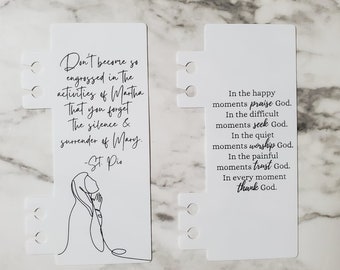 Don't become so
engrossed in the
activities of Martha
that you forget
the silence &
surrender of Mary.
-St. Pio
In the happy
moments praise God.
In the difficult
moments seek God.
In the quiet
moments worship God.
In the painful
moments trust God.
In every moment
thank God.